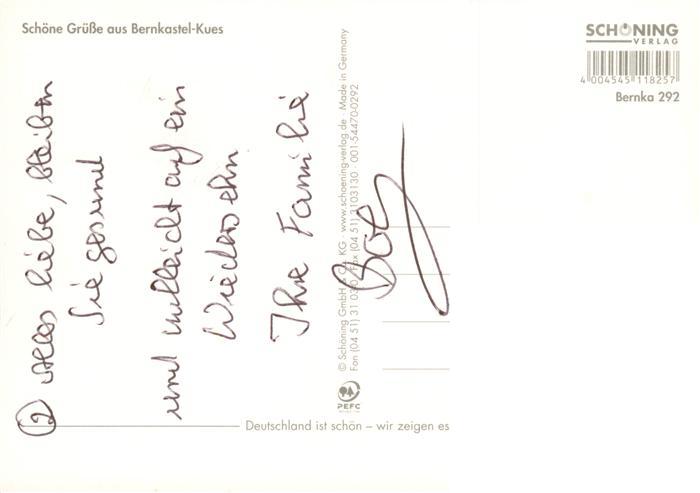 Schöne Grüße aus Bernkastel-Kues
SCHÖNING
VERLAG
4 004545 118257
Bernka 292
② Alles liebe, bleiben
Sie gesund
und vielleicht auf ein
Wiedersehn
Ihre Familie
© Schöning GmbH & Co. KG · www.schoening-verlag.de Made in Germany
Fon (04 51) 31 03 0 Fax (04 51) 3103130 · 001-54470-0292
PEFC
Deutschland ist schön – wir zeigen es